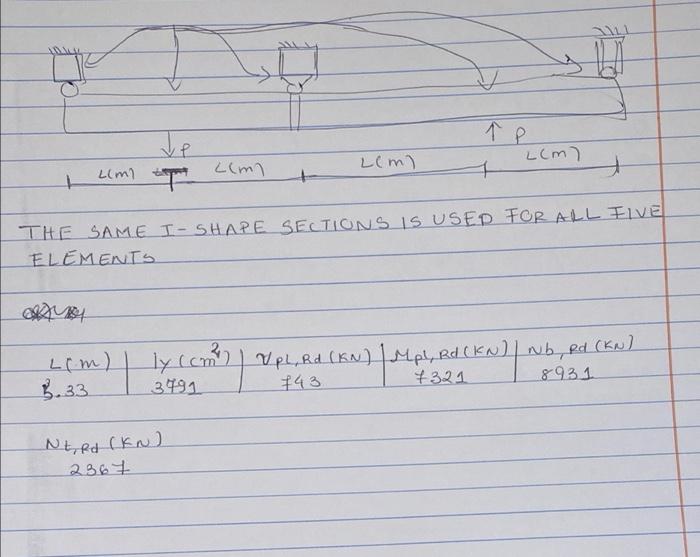 P
P
L(m) L(m) L(m) L(m)
THE SAME I-SHAPE SECTIONS IS USED FOR ALL FIVE
ELEMENTS
L(m) | Iy (cm⁴) | Vpl,Rd (KN) | Mpl,Rd (KN) | Nb,Rd (KN)
5.33 3791 743 7321 8931
Nt,Rd (KN)
2367